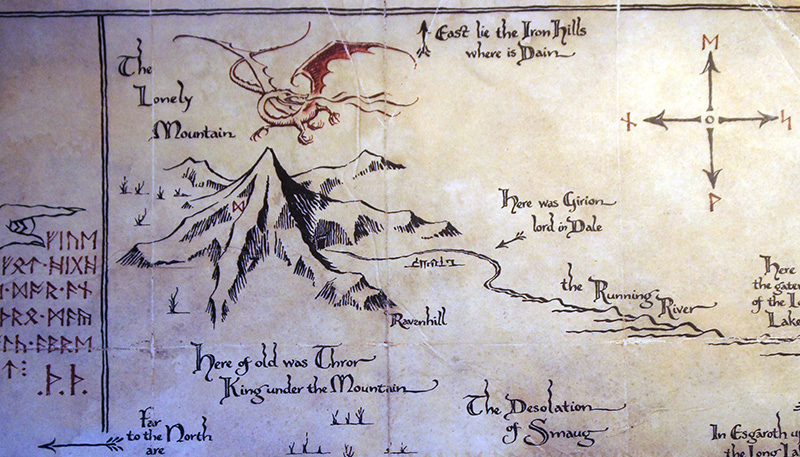 The
Lonely
Mountain
East lie the Iron Hills
where is Dain
ᛖ
ᚾ ᛋ
ᚹ
ᛞ
Here was Girion
lord in Dale
ᚠᛁᚢᛖ
ᚠᛟᛏ·ᚻᛁᚷᚻ
ᛞᚩᚱ·ᚪᚾ
ᚦᚱᛟ·ᛗᚪᚣ
ᛚᚳ·ᚪᛒᚱᛖ
ᛏ⋮
.ᚦ.ᚦ.
the Running River
Ravenhill
Here
the gate
of the L
Lake
Here of old was Thror
King under the Mountain
The Desolation
of Smaug
Far
to the North
are
In Esgaroth u
the Long La